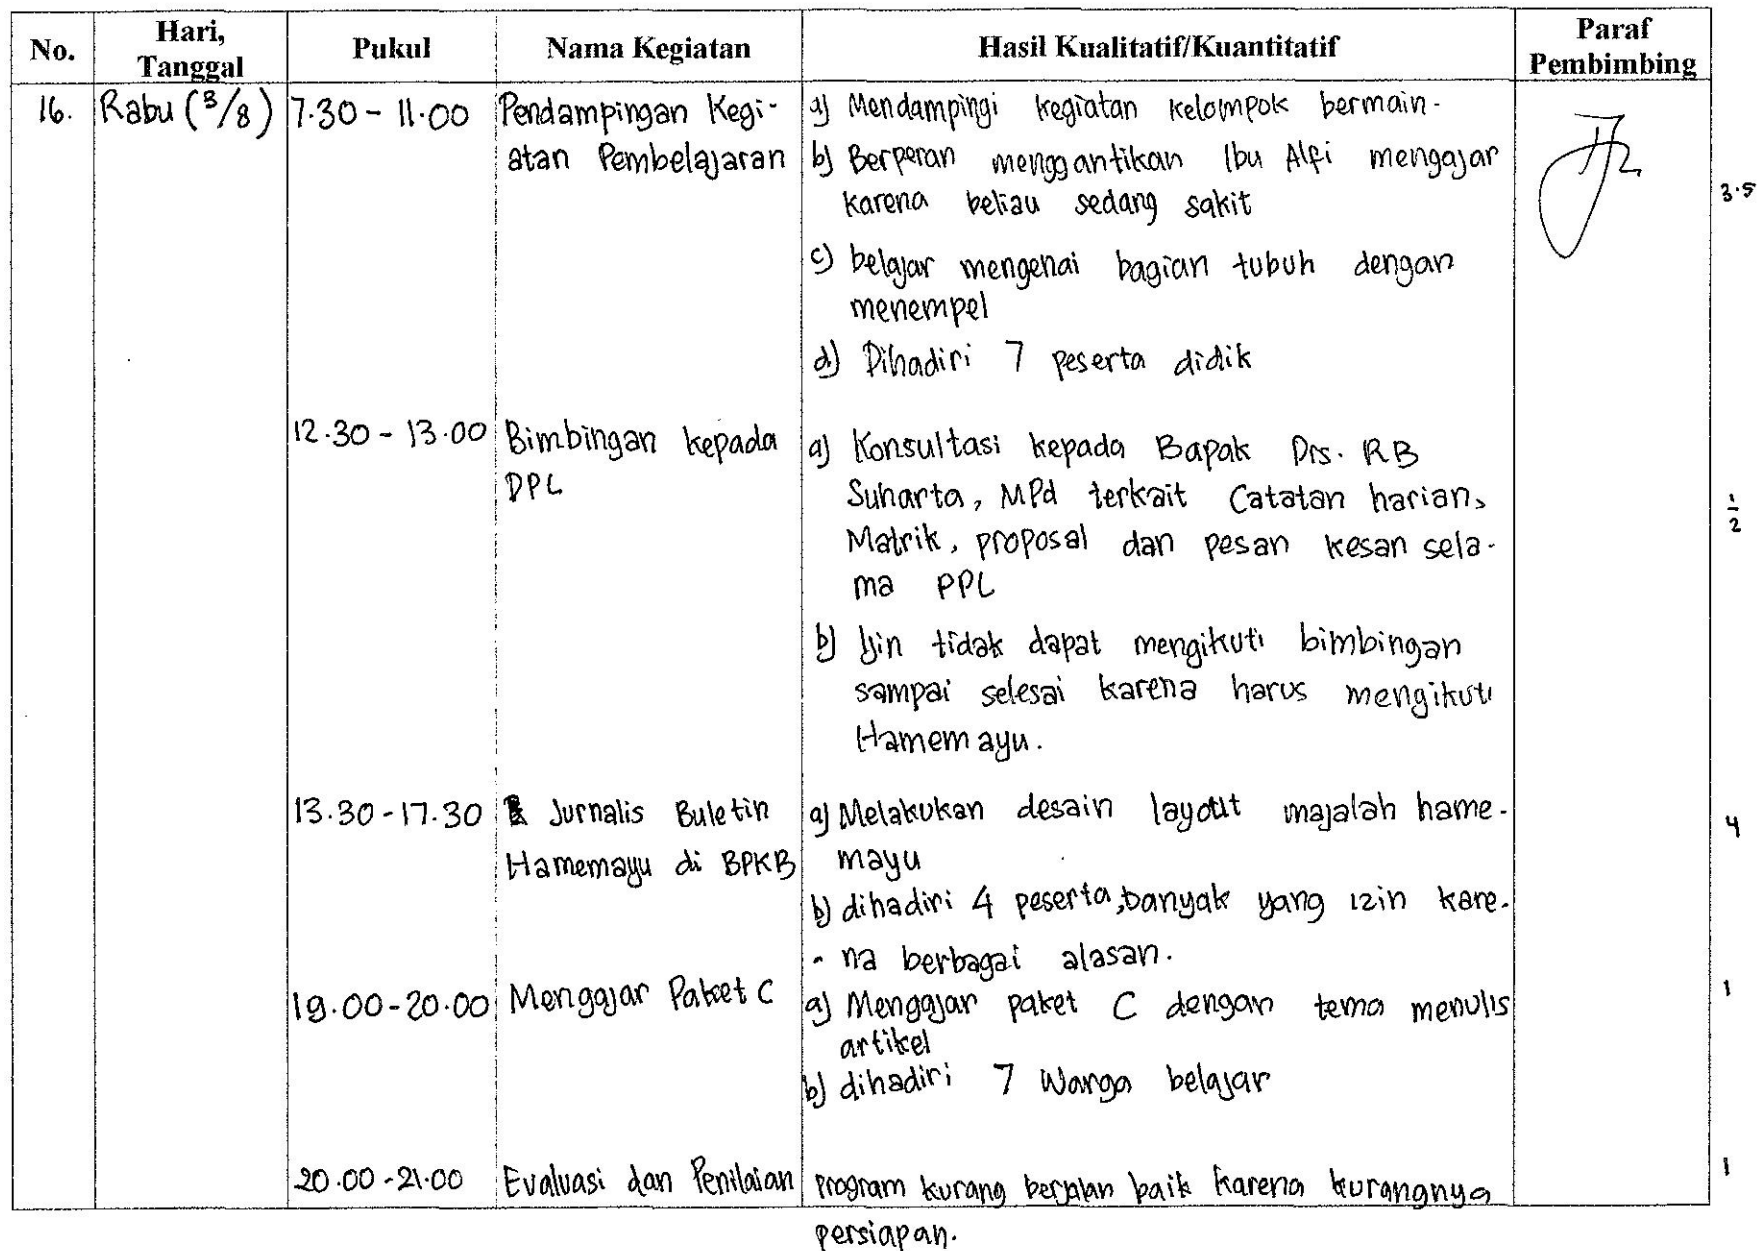 No. Hari, Tanggal Pukul Nama Kegiatan Hasil Kualitatif/Kuantitatif Paraf Pembimbing
16. Rabu (3/8) 7.30 - 11.00 Pendampingan Kegi- a) Mendampingi kegiatan kelompok bermain.
atan Pembelajaran b) Berperan menggantikan Ibu Alfi mengajar
karena beliau sedang sakit
3.5
c) belajar mengenai bagian tubuh dengan
menempel
d) Dihadiri 7 peserta didik
12.30 - 13.00 Bimbingan kepada a) Konsultasi kepada Bapak Drs. RB
DPL Suharta, MPd terkait Catatan harian,
1/2
Matrik, proposal dan pesan kesan sela-
ma PPL
b) Ijin tidak dapat mengikuti bimbingan
sampai selesai karena harus mengikuti
Hamemayu.
13.30 - 17.30 Jurnalis Buletin a) Melakukan desain layout majalah hame- 4
Hamemayu di BPKB mayu
b) dihadiri 4 peserta, banyak yang izin kare-
- na berbagai alasan.
19.00 - 20.00 Mengajar Paket C a) Mengajar paket C dengan tema menulis 1
artikel
b) dihadiri 7 Warga belajar
20.00 - 21.00 Evaluasi dan Penilaian program kurang berjalan baik karena kurangnya 1
persiapan.